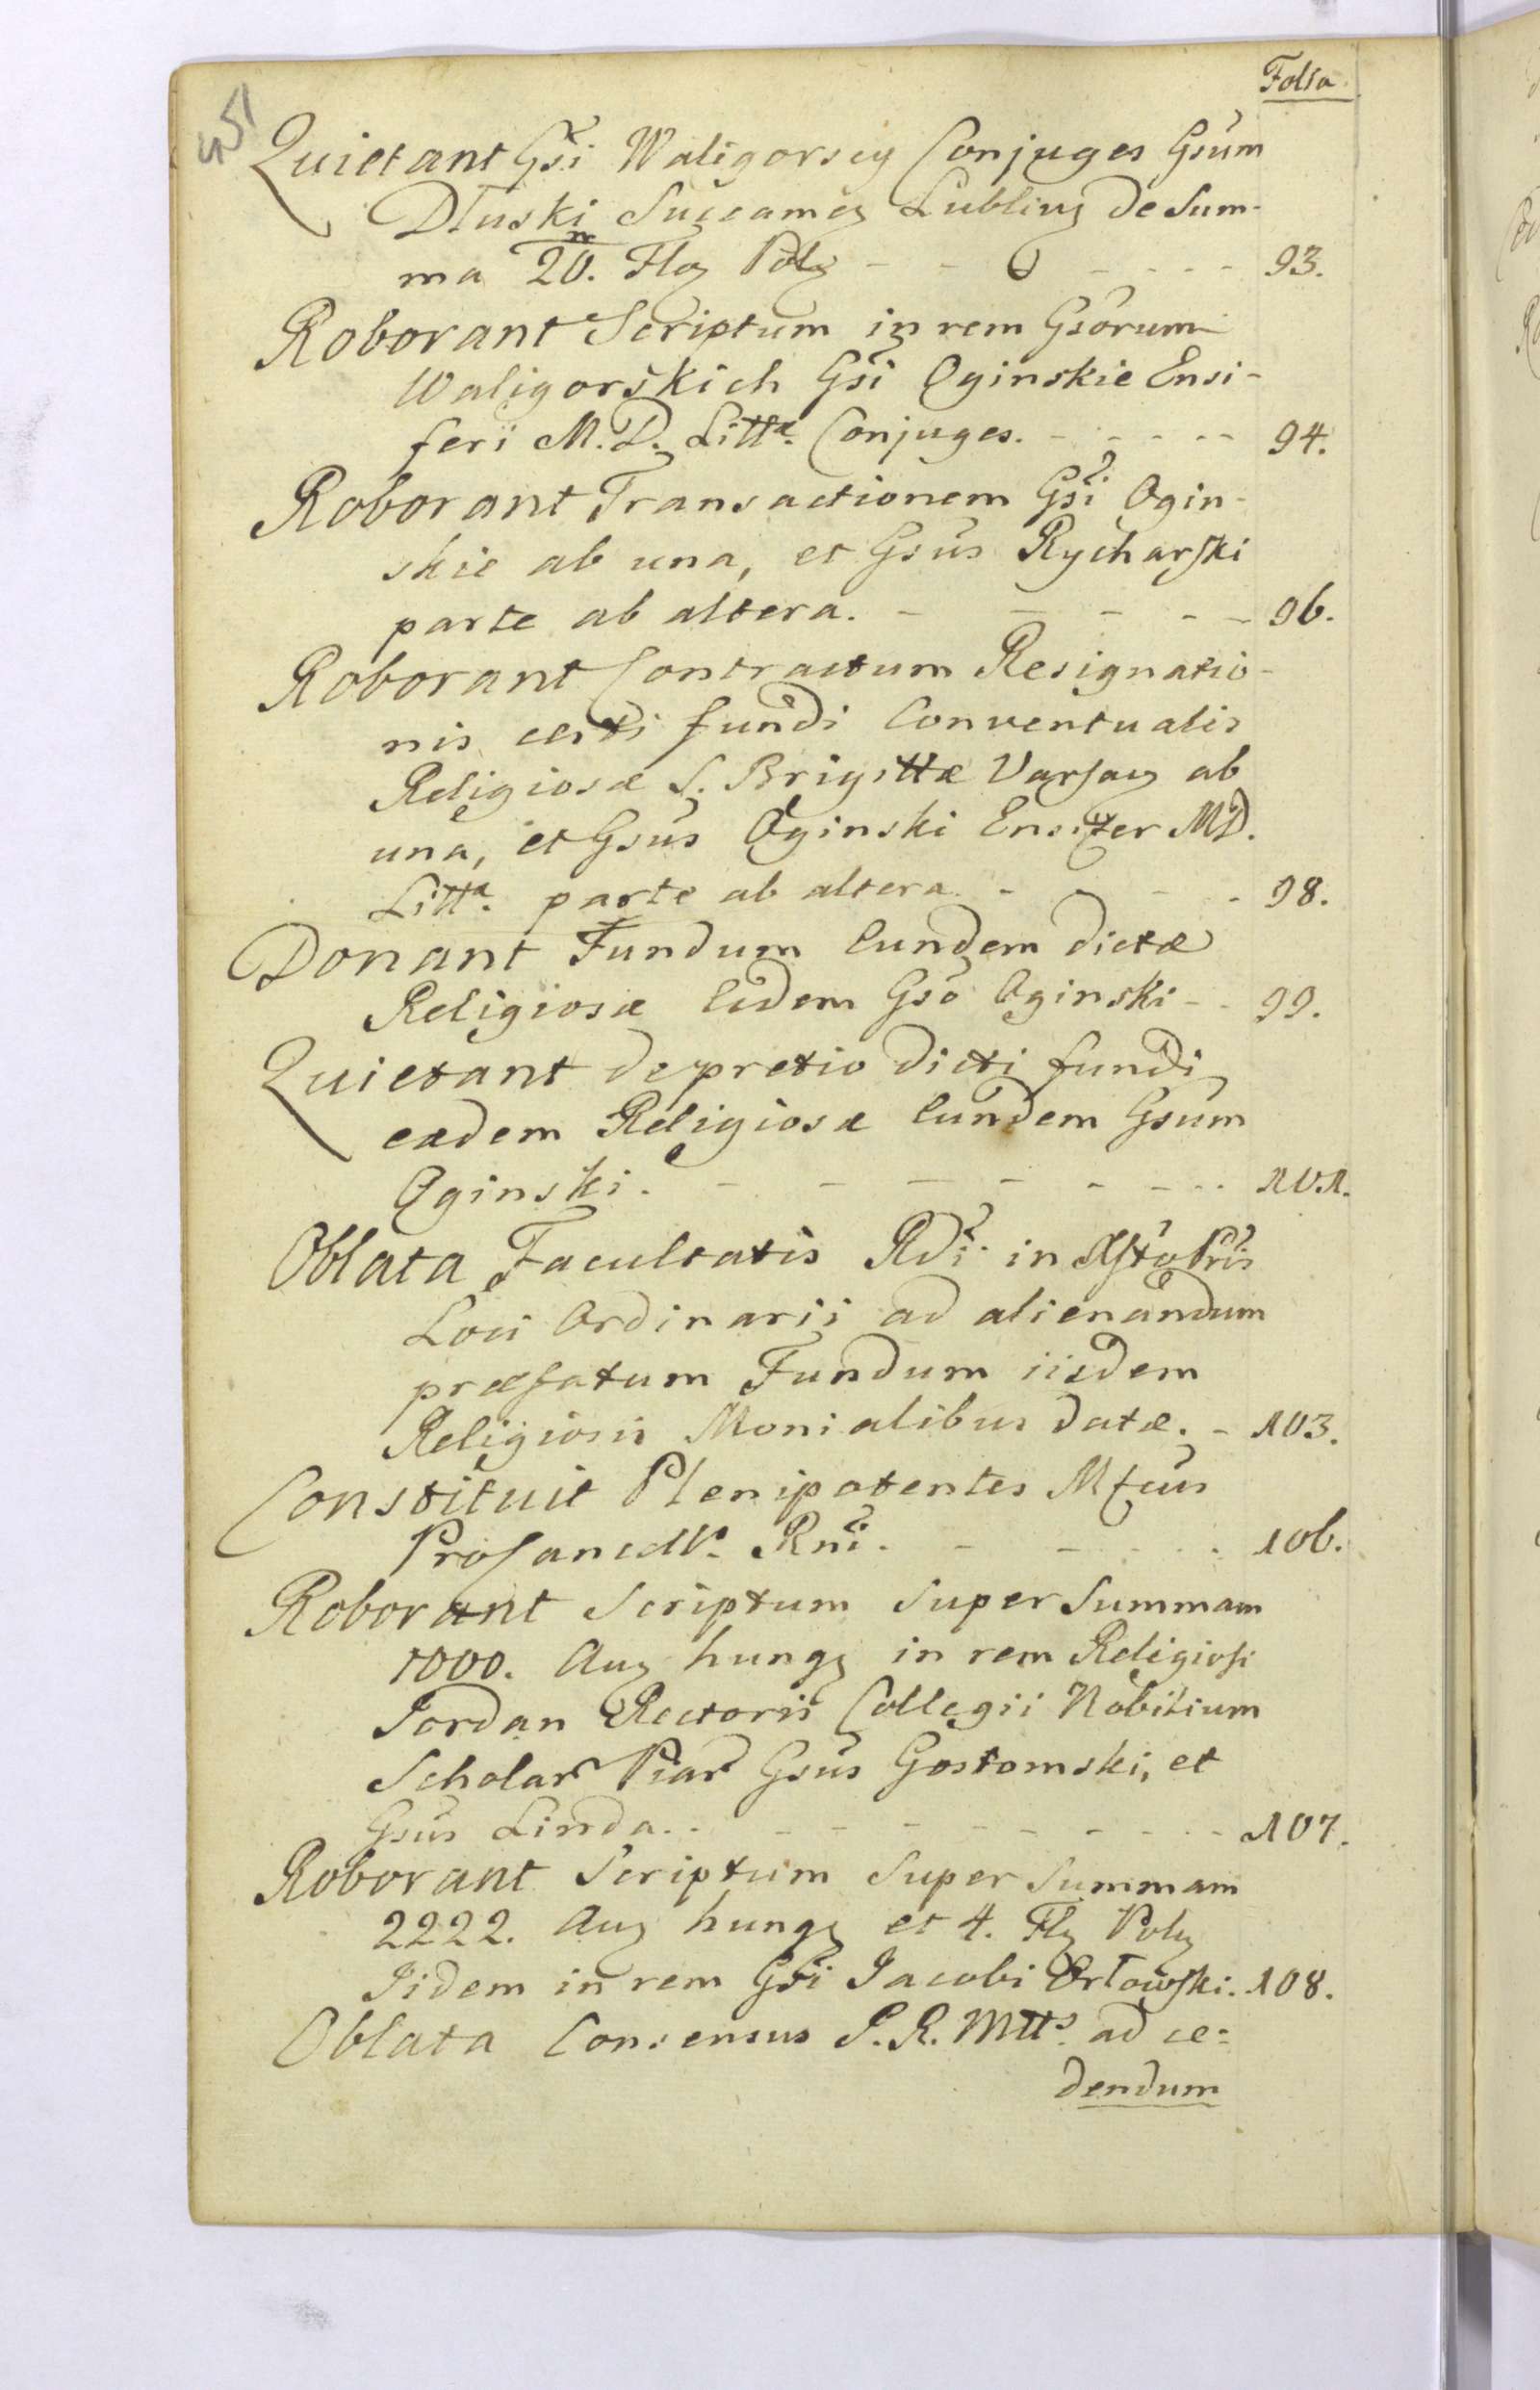 Folia
451
Quietant Gsi Waligorscy Conjuges Gsum
Dłuski Succamey Lubliny de Sum-
ma 20. m Floy Poly - - - - - - 93.
Roborant Scriptum in rem Gsorum
Waligorskich Gsi Oginskie Ensi-
feri M. D. Littæ. Conjuges. - - - - - 94.
Roborant Transactionem Gsi Ogin-
skie ab una, et Gsus Rycharski
parte ab altera. - - - - - 96.
Roborant Contractum Resignatio-
nis certi fundi Conventualis
Religiosæ S. Brigittæ Varsay ab
una, et Gsus Oginski Ensifer MD.
Litta. parte ab altera - - - - 98.
Donant Fundum Eundem dictæ
Religiosæ Eidem Gso Oginski - - 99.
Quietant de pretio dicti fundi
eædem Religiosæ Eundem Gsum
Oginski. - - - - - - - 101.
Oblata Facultatis Rdi. in Xsto Pris
Loci Ordinarii ad alienandum
præfatum Fundum iisdem
Religiosis Monialibus datæ. - 103.
Constituit Plenipotentes Mfcus
Rni. - - - - - 106.
Roborant Scriptum super Summam
1000. Auy hungy in rem Religiosi
Jordan Rectoris Collegii Nobilium
Scholar Piar Gsus Gostomski, et
Gsus Linda. - - - - - - - - 107.
Roborant Scriptum super Summam
2222. Auy hungy et 4. Fly Poly
Iidem in rem Gsi Jacobi Orłowski. 108.
Oblata Consensus S. R. Mtts. ad ce-
dendum